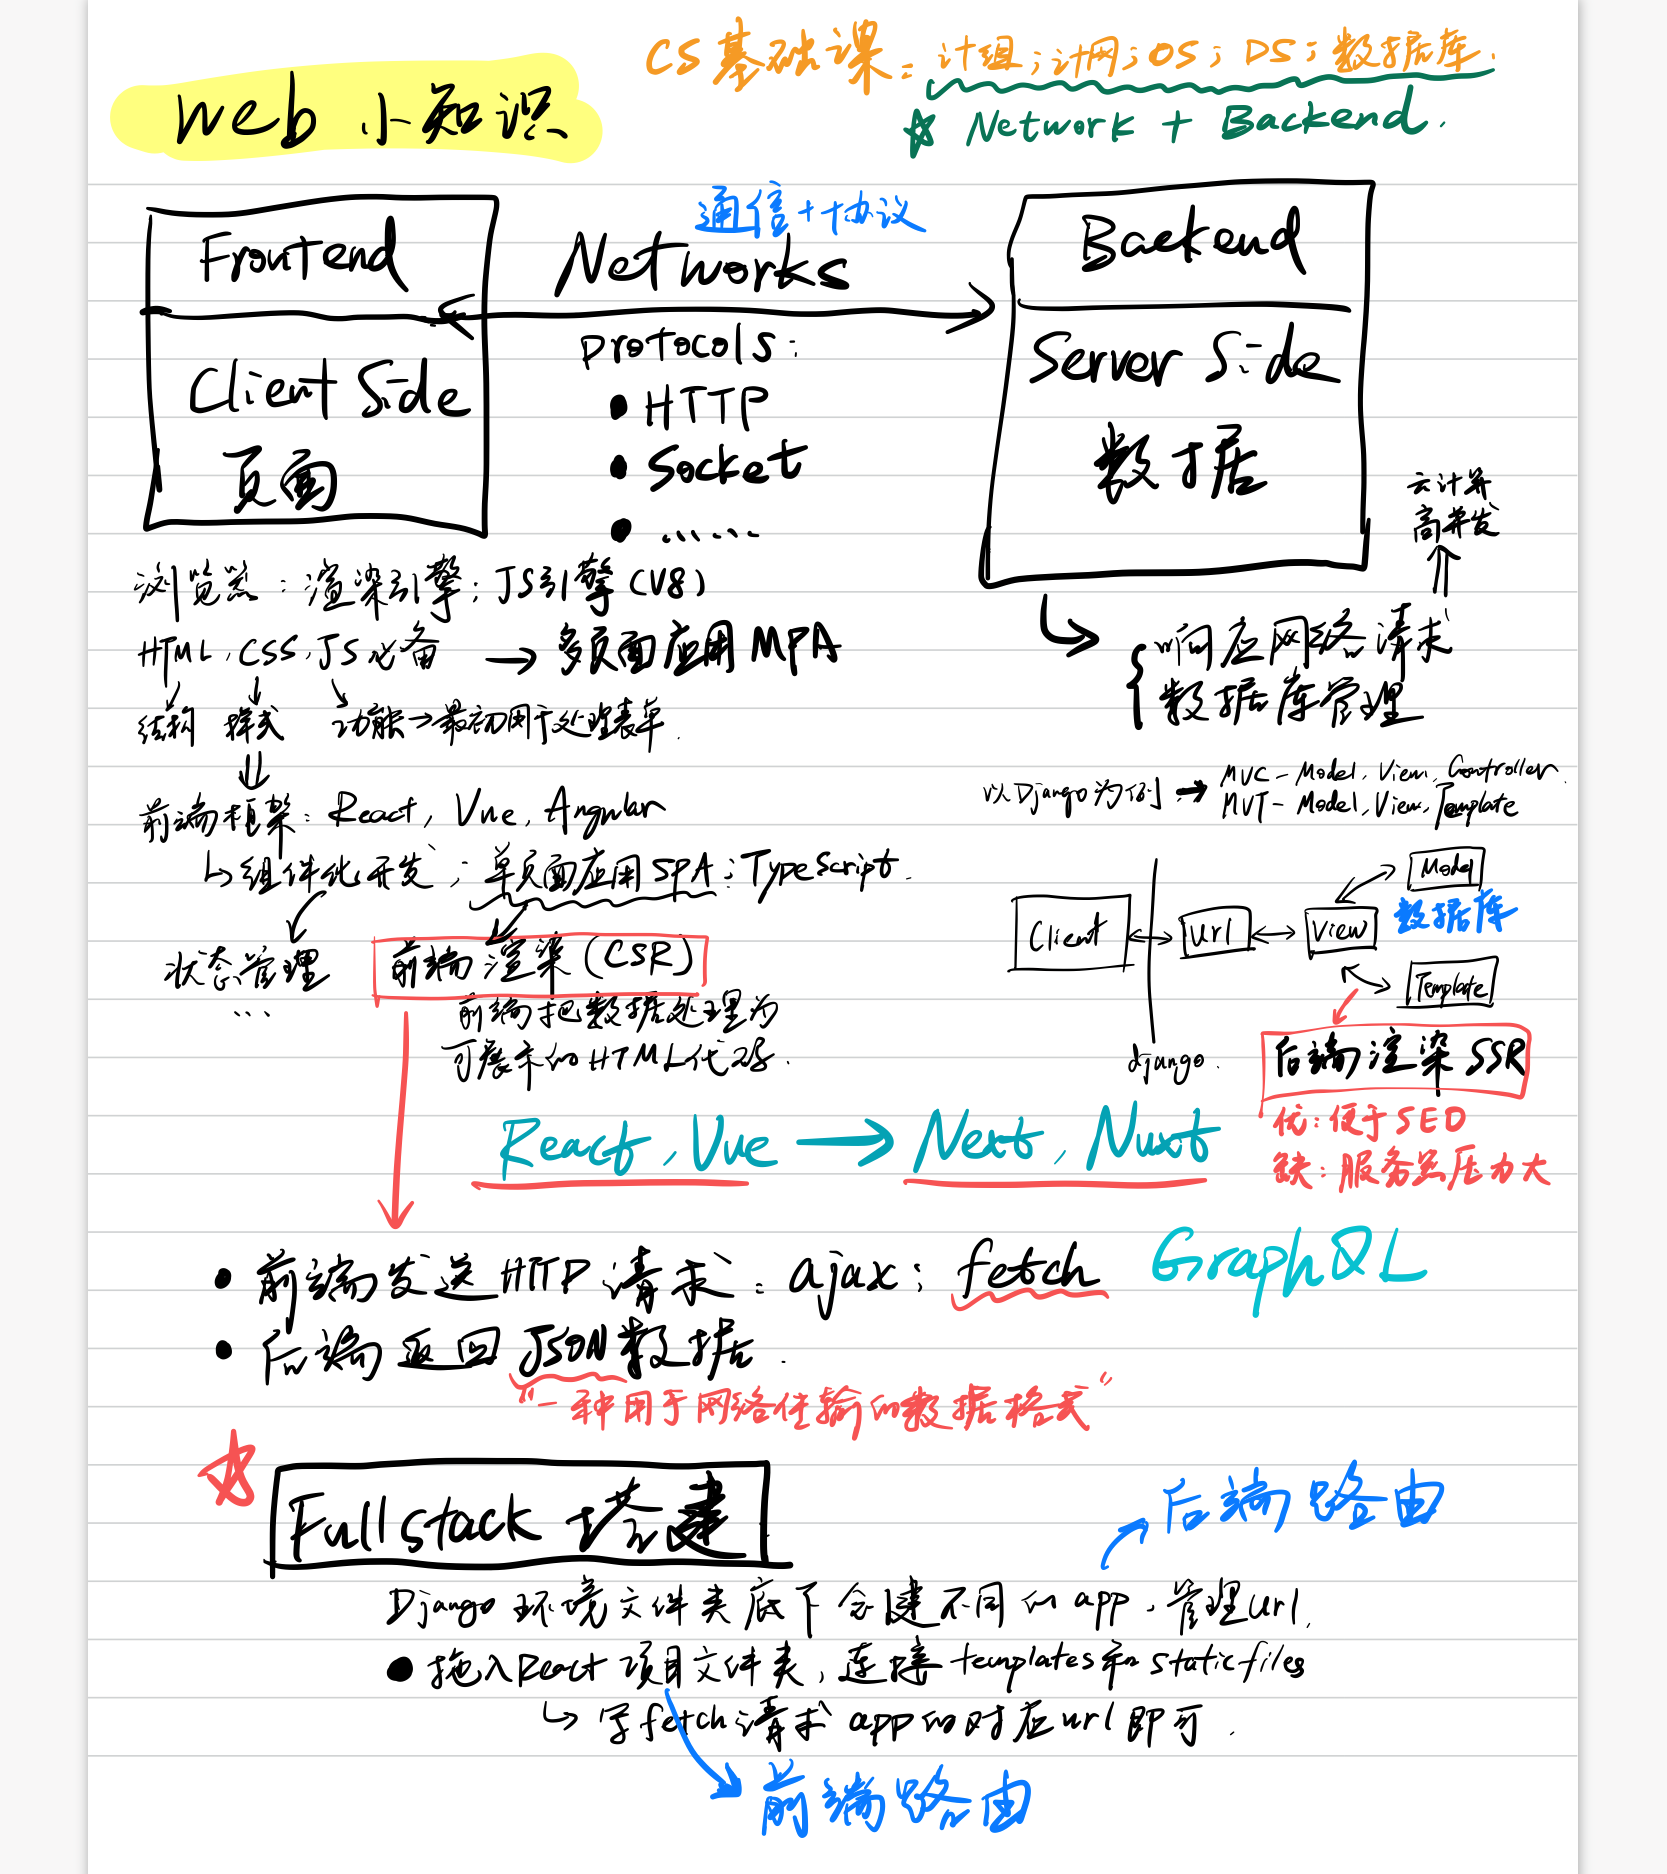 CS基础课：计组；计网；OS；DS；数据库.
Web 小知识
☆ Network + Backend.
通信+协议
Frontend
Networks
Backend
Client Side
页面
Protocols:
• HTTP
• Socket
• ……
Server Side
数据
云计算
高并发
浏览器：渲染引擎；JS引擎(V8)
HTML, CSS, JS必备 → 多页面应用MPA
结构 样式 功能→最初用于处理表单.
响应网络请求
数据库管理
前端框架：React, Vue, Angular
↳组件化开发；单页面应用SPA；TypeScript.
以Django为例 → MVC - Model, View, Controller.
MVT - Model, View, Template
状态管理
...
前端渲染(CSR)
前端把数据处理为
可展示的HTML代码.
Client
url
View
Model
数据库
Template
django.
后端渲染 SSR
优：便于SEO
缺：服务器压力大
React, Vue → Next, Nuxt
• 前端发送HTTP请求：ajax；fetch
GraphQL
• 后端返回JSON数据.
“一种用于网络传输的数据格式”
☆ Fullstack 搭建
后端路由
Django环境文件夹底下创建不同的app, 管理url.
• 拖入React项目文件夹, 连接templates和staticfiles
↳ 写fetch请求app的对应url即可.
前端路由